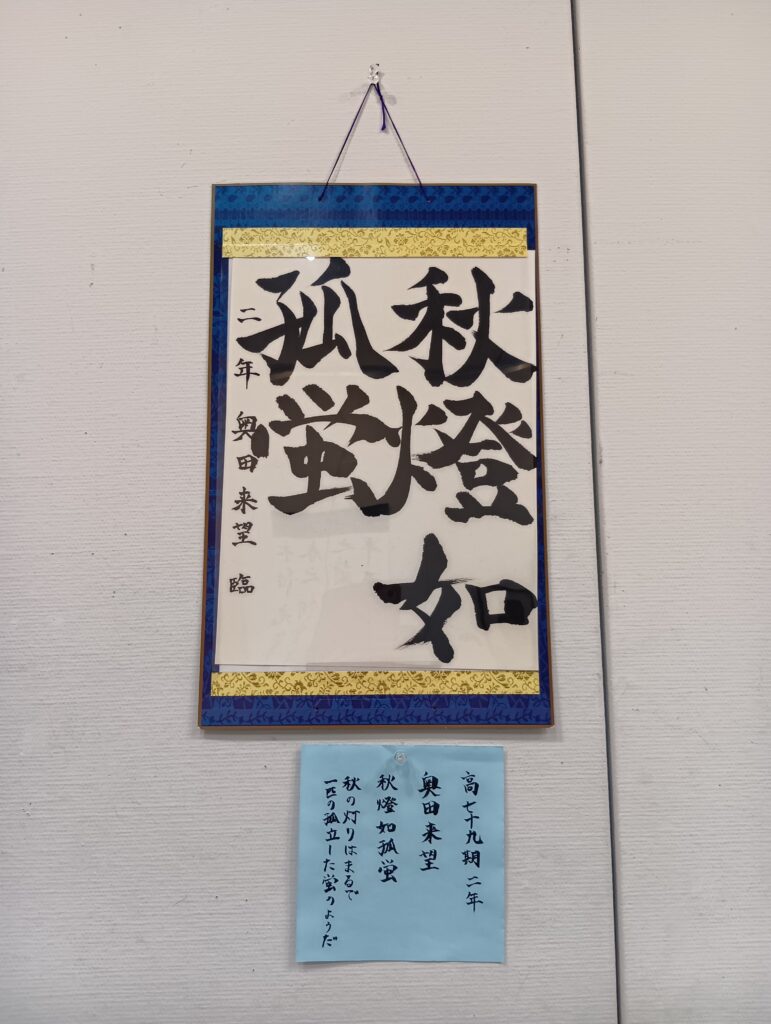 秋燈如
孤蛍
二年 奥田来望 臨
高七十九期 二年
奥田来望
秋燈如孤蛍
秋の灯りはまるで
一匹の孤立した蛍のようだ